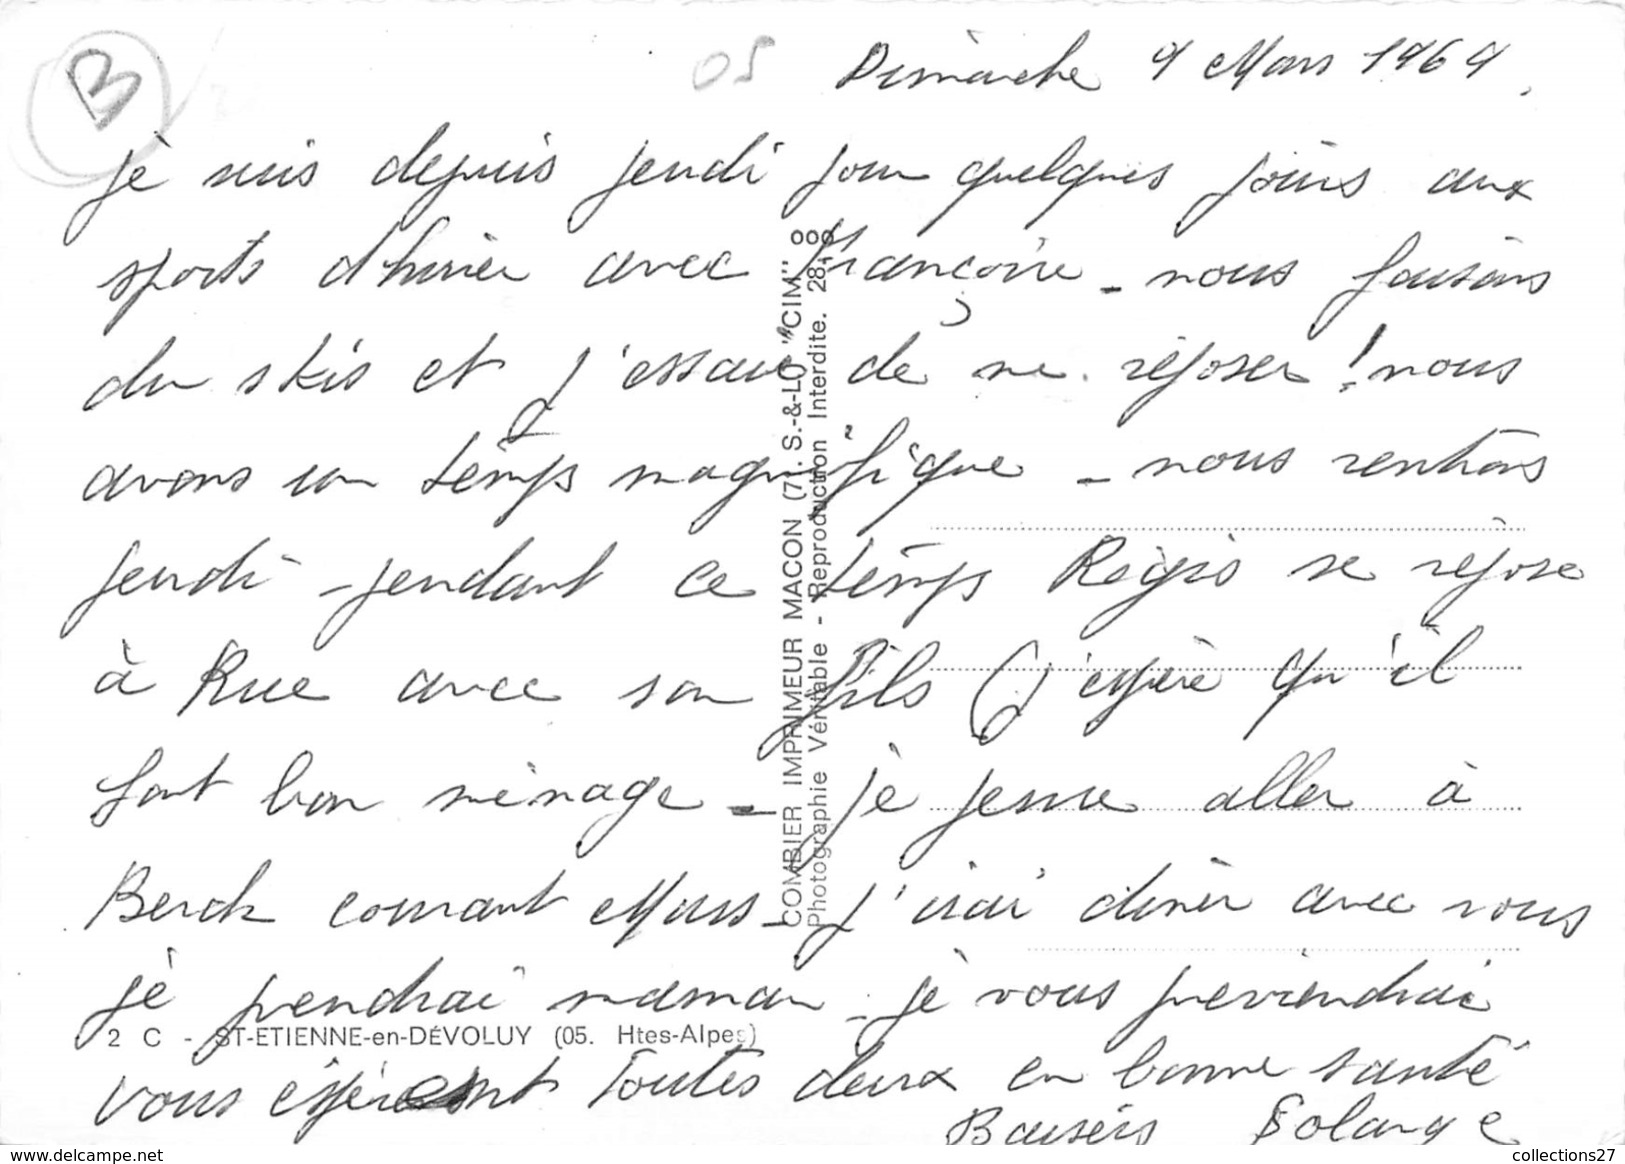 B
05
Dimanche 9 Mars 1969.
je suis depuis jeudi pour quelques jours aux
sports d'hiver avec Françoise - nous faisons
du skis et j'essaie de me reposer ! nous
avons un temps magnifique - nous rentrons
jeudi - pendant ce temps Régis se repose
à Rue avec son fils (j'espère qu'il
font bon ménage - je pense aller à
Berck courant Mars - j'irai dîner avec vous
je prendrai maman - je vous préviendrai
vous espérant toutes deux en bonne santé
Baisers Solange
COMBIER IMPRIMEUR MACON (71. S.-&-L) "CIM"
Photographie Véritable - Reproduction Interdite. 28.000
2 C - ST-ETIENNE-en-DÉVOLUY (05. Htes-Alpes)
www.delcampe.net
collections27